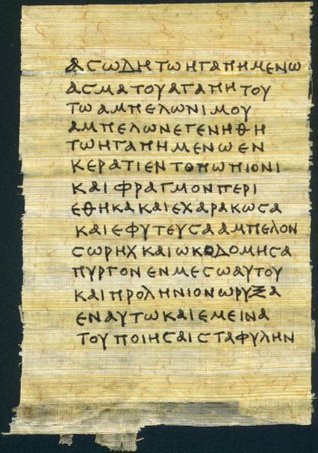 ΑϹωΔΗΤωΗΓΑΠΗΜΕΝω
ΑϹΜΑΤΟΥΑΓΑΠΗΤΟΥ
ΤωΑΜΠΕΛωΝΙΜΟΥ
ΑΜΠΕΛωΝΕΓΕΝΗΘΗ
ΤωΗΓΑΠΗΜΕΝωΕΝ
ΚΕΡΑΤΙΕΝΤΟΠωΠΙΟΝΙ
ΚΑΙΦΡΑΓΜΟΝΠΕΡΙ
ΕΘΗΚΑΚΑΙΕΧΑΡΑΚωϹΑ
ΚΑΙΕΦΥΤΕΥϹΑΑΜΠΕΛΟΝ
ϹωΡΗΧΚΑΙωΚΟΔΟΜΗϹΑ
ΠΥΡΓΟΝΕΝΜΕϹωΑΥΤΟΥ
ΚΑΙΠΡΟΛΗΝΙΟΝωΡΥΞΑ
ΕΝΑΥΤωΚΑΙΕΜΕΙΝΑ
ΤΟΥΠΟΙΗϹΑΙϹΤΑΦΥΛΗΝ